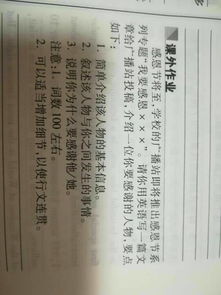 课外作业
感恩节将至,学校的广播站即将推出感恩节系
列专题“我要感恩×××”。请你用英语写一篇文
章给广播站投稿,介绍一位你要感谢的人物,要点
如下:
1. 简单介绍该人物的基本信息。
2. 叙述该人物与你之间发生的事情。
3. 说明你为什么要感谢他/她。
注意:1. 词数100左右。
2. 可以适当增加细节,以使行文连贯。